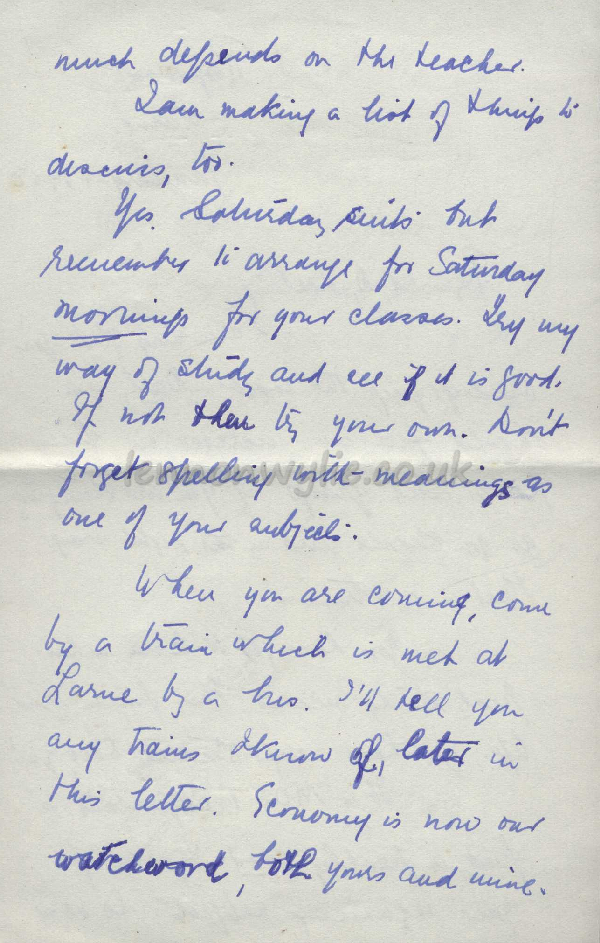 much depends on the teacher.
I am making a list of things to
discuss, too.
Yes. Saturday suits but
remember to arrange for Saturday
mornings for your classes. Try my
way of study and see if it is good.
If not then try your own. Don't
forget spelling with meanings as
one of your subjects.
When you are coming, come
by a train which is met at
Larne by a bus. I'll tell you
any trains I know of, later in
this letter. Economy is now our
watchword, both yours and mine.